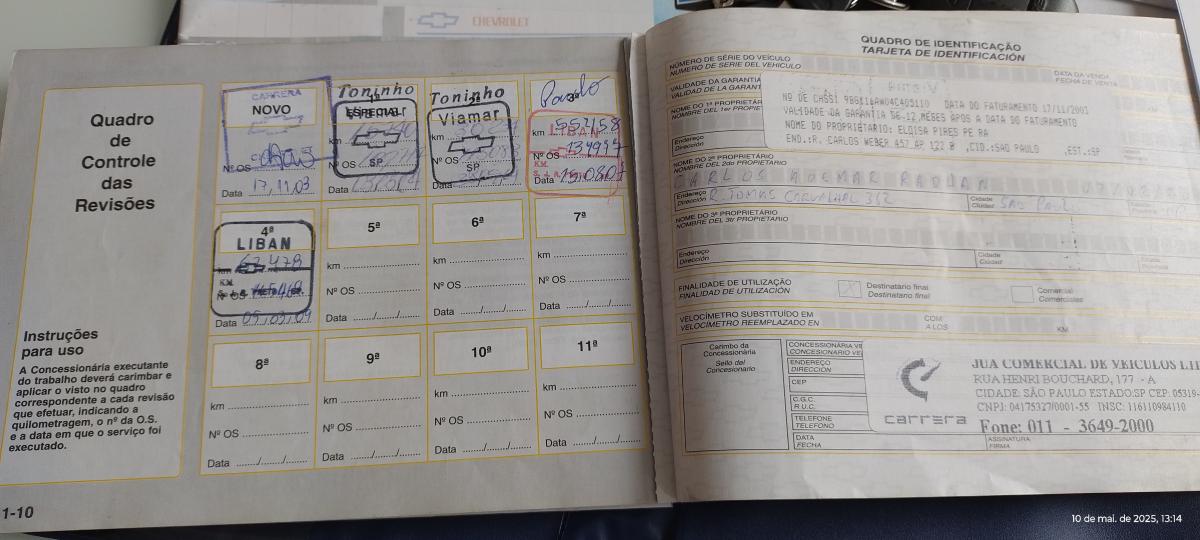 CHEVROLET
Quadro
de
Controle
das
Revisões
Instruções
para uso
A Concessionária executante
do trabalho deverá carimbar e
aplicar o visto no quadro
correspondente a cada revisão
que efetuar, indicando a
quilometragem, o nº da O.S.
e a data em que o serviço foi
executado.
1-10
CARRERA
NOVO
Nº OS
Data 17,11,03
Toninho
1ª
ESPECIAL
km
Nº OS
SP
Data
Toninho
2ª
Viamar
km
Nº OS
SP
Data
Paulo
3ª
km
LIBAN
Nº OS 13999
KM
Data 15.08.07
4ª
LIBAN
km 67.478
KM
Nº OS
Data 05,03,09
5ª
km
Nº OS
Data ....../....../......
6ª
km
Nº OS
Data ....../....../......
7ª
km
Nº OS
Data ....../....../......
8ª
km
Nº OS
Data ....../....../......
9ª
km
Nº OS
Data ....../....../......
10ª
km
Nº OS
Data ....../....../......
11ª
km
Nº OS
Data ....../....../......
QUADRO DE IDENTIFICAÇÃO
TARJETA DE IDENTIFICACIÓN
NÚMERO DE SÉRIE DO VEÍCULO
NÚMERO DE SERIE DEL VEHÍCULO
DATA DA VENDA
FECHA DE VENTA
VALIDADE DA GARANTIA
VALIDAD DE LA GARANT
Nº DE CHASSI DATA DO FATURAMENTO 17/11/2003
VALIDADE DA GARANTIA DE-12,MESES APOS A DATA DO FATURAMENTO
NOME DO PROPRIETARIO: ELOISA PIRES PE RA
END.:R. CARLOS WEBER 457 AP 122 B ,CID.:SAO PAULO ,EST.:SP
NOME DO 1º PROPRIETÁR
NOMBRE DEL 1er PROPIET
Endereço
Dirección
NOME DO 2º PROPRIETÁRIO
NOMBRE DEL 2do PROPIETARIO
CARLOS ADEMAR RADUAN
Endereço
Dirección
R. TOMAS CARVALHAL 362
Cidade
Ciudad
SÃO PAULO
NOME DO 3º PROPRIETÁRIO
NOMBRE DEL 3er PROPIETARIO
Endereço
Dirección
Cidade
Ciudad
FINALIDADE DE UTILIZAÇÃO
FINALIDAD DE UTILIZACIÓN
Destinatário final
Destinatario final
Comercial
Comerciales
VELOCÍMETRO SUBSTITUÍDO EM
VELOCÍMETRO REEMPLAZADO EN
COM
A LOS
KM
Carimbo da
Concessionária
Sello del
Concesionario
CONCESSIONÁRIA VE
CONCESIONARIO VE
ENDEREÇO
DIRECCIÓN
CEP
C.G.C.
R.U.C.
TELEFONE
TELEFONO
DATA
FECHA
ASSINATURA
FIRMA
carrera
JUA COMERCIAL DE VEICULOS
RUA HENRI BOUCHARD, 177 - A
CIDADE: SÃO PAULO ESTADO:SP CEP: 05319-
CNPJ: 04175327/0001-55 INSC: 116110984110
Fone: 011 - 3649-2000
10 de mai. de 2025, 13:14